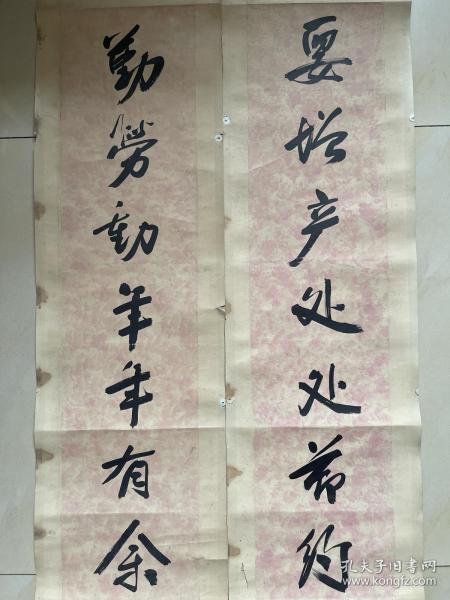 要增产处处节约
勤勞動年年有余
孔夫子旧书网
www.kongfz.com